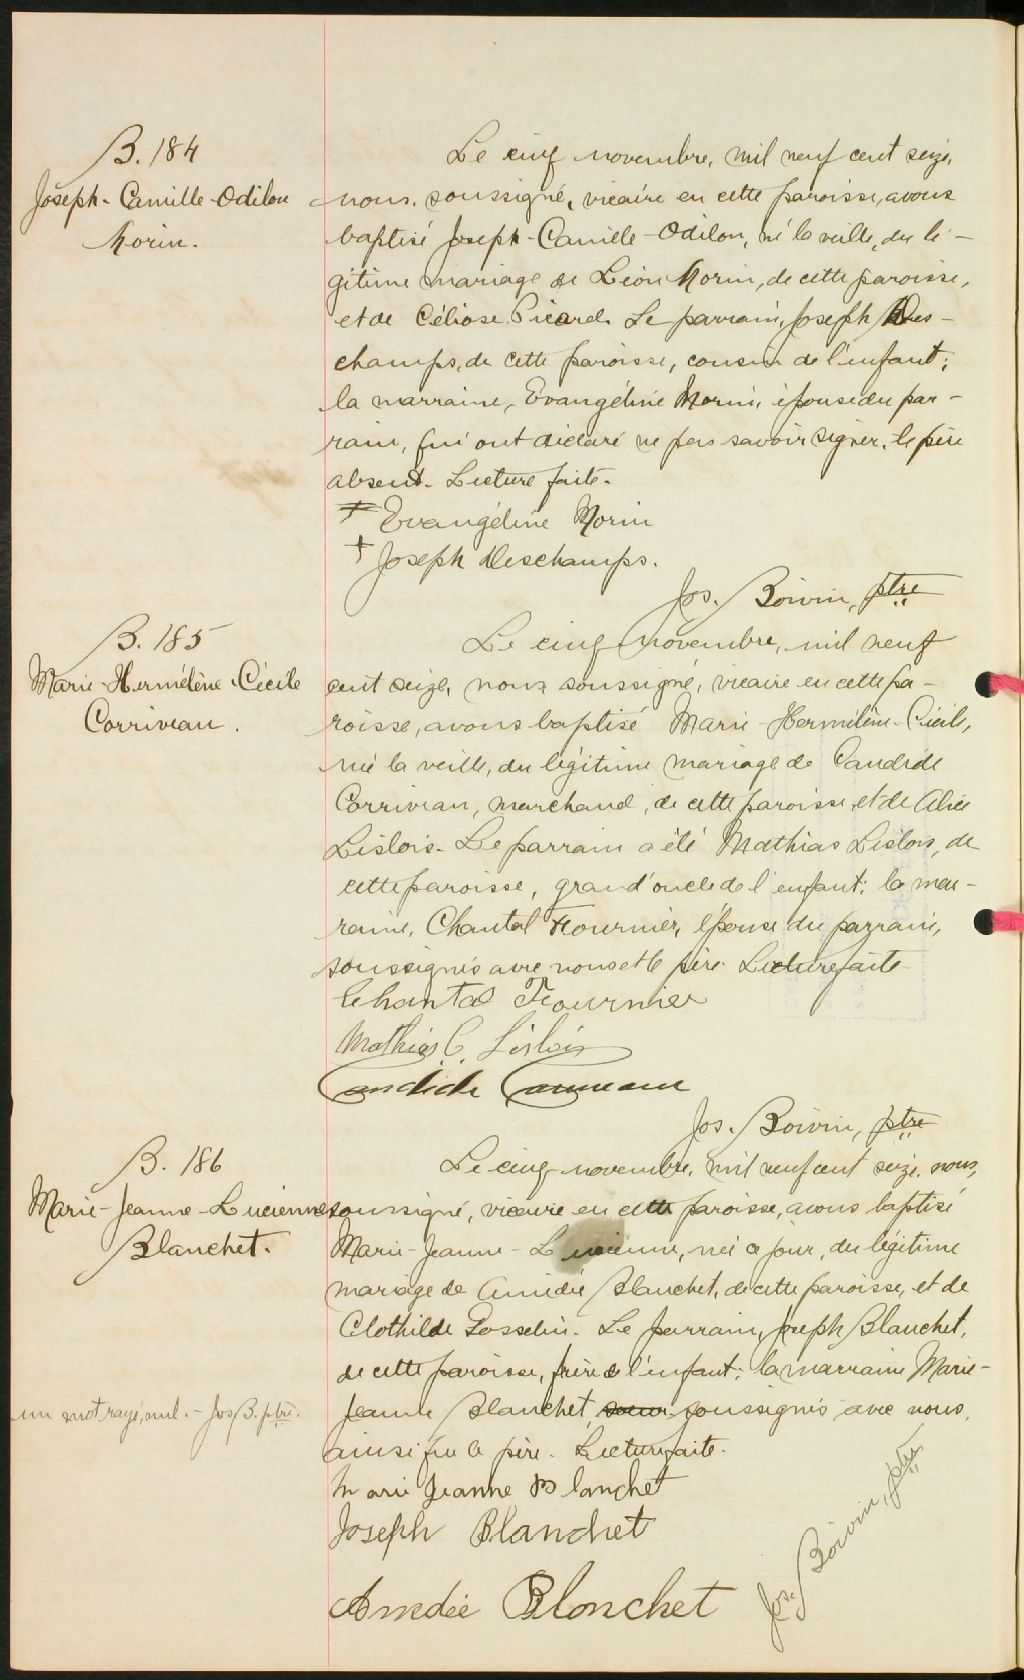 B. 184
Joseph-Camille-Odilon
Morin.
Le cinq novembre, mil neuf cent seize,
nous, soussigné, vicaire en cette paroisse, avons
baptisé Joseph-Camille-Odilon, né la veille, du lé-
gitime mariage de Léon Morin, de cette paroisse,
et de Céliose Picard. Le parrain, Joseph Des-
champs, de cette paroisse, cousin de l'enfant;
la marraine, Evangéline Morin, épouse du par-
rain, qui ont déclaré ne pas savoir signer, le père
absent. Lecture faite.
+ Evangéline Morin
+ Joseph Deschamps.
Jos. Boivin, ptre
B. 185
Marie-Hermélène-Cécile
Corriveau.
Le cinq novembre, mil neuf
cent seize, nous soussigné, vicaire en cette pa-
roisse, avons baptisé Marie-Hermélène-Cécile,
née la veille, du légitime mariage de Candide
Corriveau, marchand, de cette paroisse et de Alice
Lislois. Le parrain a été Mathias Lislois, de
cette paroisse, grand'oncle de l'enfant; la mar-
raine, Chantal Fournier, épouse du parrain,
soussignés avec nous et le père. Lecture faite.
Chantal Fournier
Mathias C. Lislois
Candide Corriveau
Jos. Boivin, ptre
B. 186
Marie-Jeanne-Lucienne
Blanchet.
Le cinq novembre, mil neuf cent seize, nous,
soussigné, vicaire en cette paroisse, avons baptisé
Marie-Jeanne-Lucienne, née ce jour, du légitime
mariage de Amédée Blanchet, de cette paroisse, et de
Clothilde Gosselin. Le parrain, Joseph Blanchet,
de cette paroisse, frère de l'enfant; la marraine Marie-
Jeanne Blanchet, soeur soussignés avec nous,
ainsi que le père. Lecture faite.
un mot rayé, nul. - Jos B. ptre.
Marie Jeanne Blanchet
Joseph Blanchet
Amédée Blanchet
Jos. Boivin, ptre